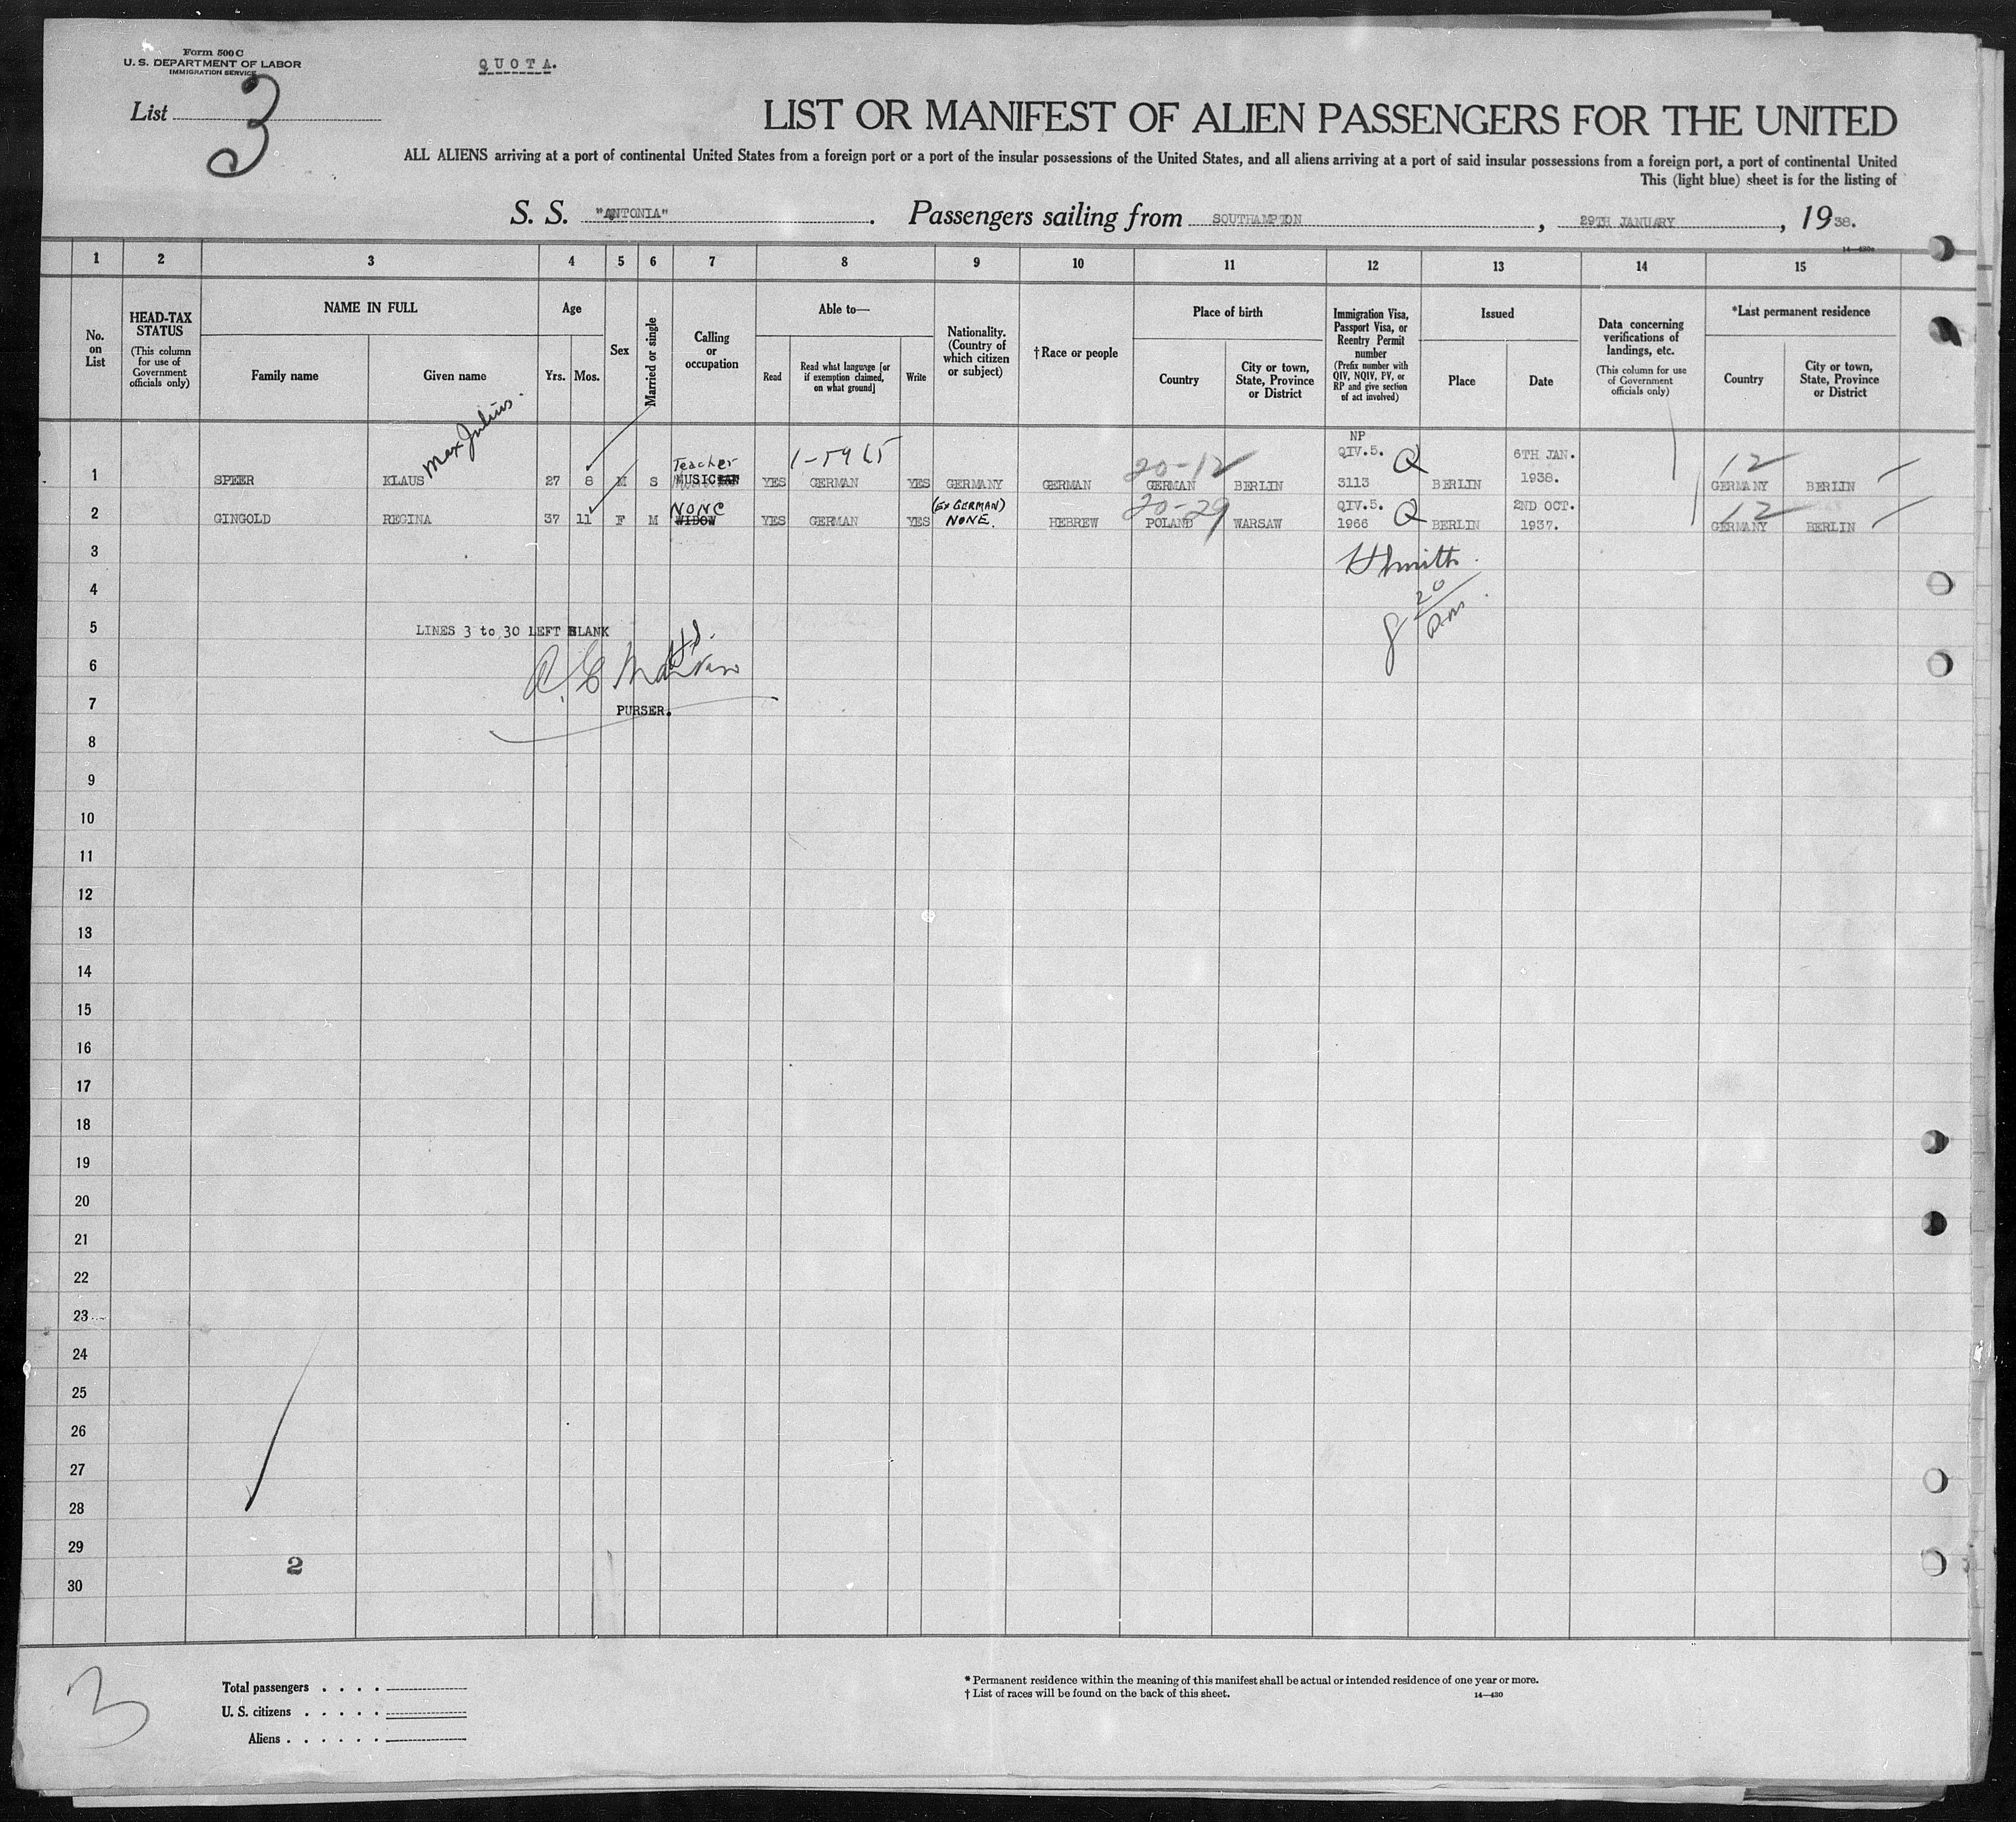 Form 500 C
U. S. DEPARTMENT OF LABOR
IMMIGRATION SERVICE
QUOTA.
List 3
LIST OR MANIFEST OF ALIEN PASSENGERS FOR THE UNITED
ALL ALIENS arriving at a port of continental United States from a foreign port or a port of the insular possessions of the United States, and all aliens arriving at a port of said insular possessions from a foreign port, a port of continental United
This (light blue) sheet is for the listing of
S. S. "ANTONIA". Passengers sailing from SOUTHAMPTON, 29TH JANUARY, 1938.
14—430a
1 2 3 4 5 6 7 8 9 10 11 12 13 14 15
No. on List
HEAD-TAX STATUS
(This column for use of Government officials only)
NAME IN FULL
Family name
Given name
Age
Yrs.
Mos.
Sex
Married or single
Calling or occupation
Able to—
Read
Read what language [or if exemption claimed, on what ground]
Write
Nationality. (Country of which citizen or subject)
† Race or people
Place of birth
Country
City or town, State, Province or District
Immigration Visa, Passport Visa, or Reentry Permit number
(Prefix number with QIV, NQIV, PV, or RP and give section of act involved)
Issued
Place
Date
Data concerning verifications of landings, etc.
(This column for use of Government officials only)
*Last permanent residence
Country
City or town, State, Province or District
Max Julius.
Teacher
1-5965
20-12
NP
QIV.5. Q
6TH JAN.
12
1 SPEER KLAUS 27 8 M S MUSICIAN YES GERMAN YES GERMANY GERMAN GERMAN BERLIN 3113 BERLIN 1938. GERMANY BERLIN
NONE
(EX GERMAN)
20-29
QIV.5. Q
2ND OCT.
12
2 GINGOLD REGINA 37 11 F M WIDOW YES GERMAN YES NONE. HEBREW POLAND WARSAW 1966 BERLIN 1937. GERMANY BERLIN
3
HSmith.
4
20
5
LINES 3 to 30 LEFT BLANK
6
7
PURSER.
8
9
10
11
12
13
14
15
16
17
18
19
20
21
22
23
24
25
26
27
28
29
2
30
3
Total passengers . . . .
U. S. citizens . . . . .
Aliens . . . . . .
* Permanent residence within the meaning of this manifest shall be actual or intended residence of one year or more.
† List of races will be found on the back of this sheet.
14—430